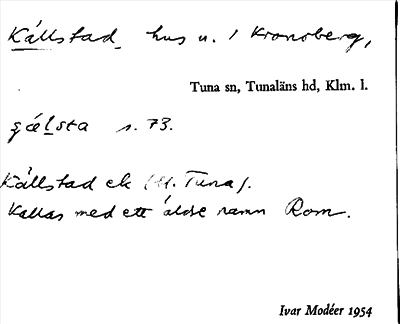 Källstad, hus u. / Kronoberg,
Tuna sn, Tunaläns hd, Klm. l.
s. 73.
Källstad ek (M. Tuna).
Kallas med ett äldre namn Rom.
Ivar Modéer 1954